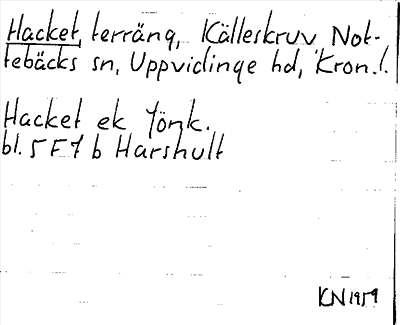 Hacket, terräng, Källeskruv, Not-
tebäcks sn, Uppvidinge hd, Kron.l.
Hacket ek Jönk.
bl. 5 F 7 b Harshult
KN 1959